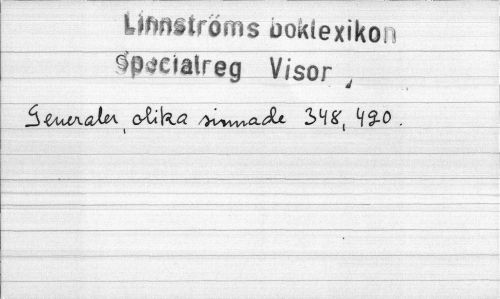 Linnströms boklexikon
Specialreg Visor
Generaler, olika sinnade 348, 490.